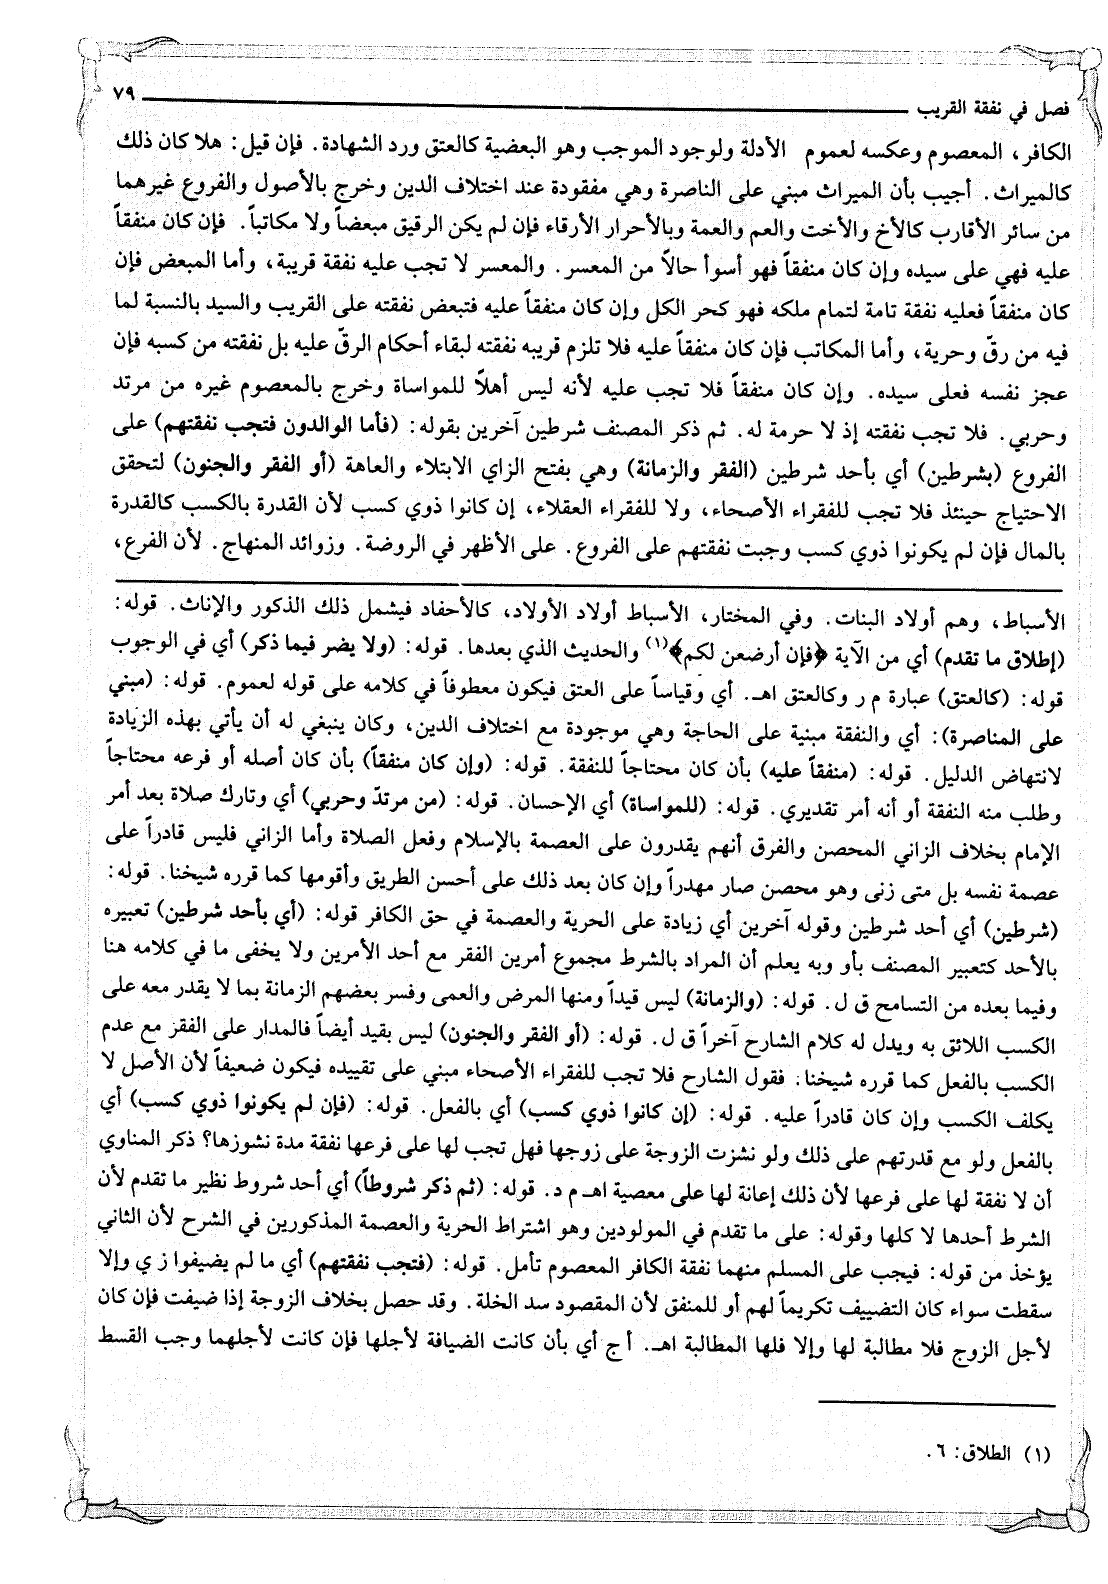 فصل في نفقة القريب ٧٩
الكافر، المعصوم وعكسه لعموم الأدلة ولوجود الموجب وهو البعضية كالعتق ورد الشهادة. فإن قيل: هلا كان ذلك
كالميراث. أجيب بأن الميراث مبني على الناصرة وهي مفقودة عند اختلاف الدين وخرج بالأصول والفروع غيرهما
من سائر الأقارب كالأخ والأخت والعم والعمة وبالأحرار الأرقاء فإن لم يكن الرقيق مبعضاً ولا مكاتباً. فإن كان منفقاً
عليه فهي على سيده وإن كان منفقاً فهو أسوأ حالاً من المعسر. والمعسر لا تجب عليه نفقة قريبة، وأما المبعض فإن
كان منفقاً فعليه نفقة تامة لتمام ملكه فهو كحر الكل وإن كان منفقاً عليه فتبعض نفقته على القريب والسيد بالنسبة لما
فيه من رقّ وحرية، وأما المكاتب فإن كان منفقاً عليه فلا تلزم قريبه نفقته لبقاء أحكام الرقّ عليه بل نفقته من كسبه فإن
عجز نفسه فعلى سيده. وإن كان منفقاً فلا تجب عليه لأنه ليس أهلاً للمواساة وخرج بالمعصوم غيره من مرتد
وحربي. فلا تجب نفقته إذ لا حرمة له. ثم ذكر المصنف شرطين آخرين بقوله: (فأما الوالدون فتجب نفقتهم) على
الفروع (بشرطين) أي بأحد شرطين (الفقر والزمانة) وهي بفتح الزاي الابتلاء والعاهة (أو الفقر والجنون) لتحقق
الاحتياج حينئذ فلا تجب للفقراء الأصحاء، ولا للفقراء العقلاء، إن كانوا ذوي كسب لأن القدرة بالكسب كالقدرة
بالمال فإن لم يكونوا ذوي كسب وجبت نفقتهم على الفروع. على الأظهر في الروضة. وزوائد المنهاج. لأن الفرع،
الأسباط، وهم أولاد البنات. وفي المختار، الأسباط أولاد الأولاد، كالأحفاد فيشمل ذلك الذكور والإناث. قوله:
(إطلاق ما تقدم) أي من الآية ﴿فإن أرضعن لكم﴾(١) والحديث الذي بعدها. قوله: (ولا يضر فيما ذكر) أي في الوجوب
قوله: (كالعتق) عبارة م ر وكالعتق اهـ. أي وقياساً على العتق فيكون معطوفاً في كلامه على قوله لعموم. قوله: (مبني
على المناصرة): أي والنفقة مبنية على الحاجة وهي موجودة مع اختلاف الدين، وكان ينبغي له أن يأتي بهذه الزيادة
لانتهاض الدليل. قوله: (منفقاً عليه) بأن كان محتاجاً للنفقة. قوله: (وإن كان منفقاً) بأن كان أصله أو فرعه محتاجاً
وطلب منه النفقة أو أنه أمر تقديري. قوله: (للمواساة) أي الإحسان. قوله: (من مرتدّ وحربي) أي وتارك صلاة بعد أمر
الإمام بخلاف الزاني المحصن والفرق أنهم يقدرون على العصمة بالإسلام وفعل الصلاة وأما الزاني فليس قادراً على
عصمة نفسه بل متى زنى وهو محصن صار مهدراً وإن كان بعد ذلك على أحسن الطريق وأقومها كما قرره شيخنا. قوله:
(شرطين) أي أحد شرطين وقوله آخرين أي زيادة على الحرية والعصمة في حق الكافر قوله: (أي بأحد شرطين) تعبيره
بالأحد كتعبير المصنف بأو وبه يعلم أن المراد بالشرط مجموع أمرين الفقر مع أحد الأمرين ولا يخفى ما في كلامه هنا
وفيما بعده من التسامح ق ل. قوله: (والزمانة) ليس قيداً ومنها المرض والعمى وفسر بعضهم الزمانة بما لا يقدر معه على
الكسب اللائق به ويدل له كلام الشارح آخراً ق ل. قوله: (أو الفقر والجنون) ليس بقيد أيضاً فالمدار على الفقر مع عدم
الكسب بالفعل كما قرره شيخنا. فقول الشارح فلا تجب للفقراء الأصحاء مبني على تقييده فيكون ضعيفاً لأن الأصل لا
يكلف الكسب وإن كان قادراً عليه. قوله: (إن كانوا ذوي كسب) أي بالفعل. قوله: (فإن لم يكونوا ذوي كسب) أي
بالفعل ولو مع قدرتهم على ذلك ولو نشزت الزوجة على زوجها فهل تجب لها على فرعها نفقة مدة نشوزها؟ ذكر المناوي
أن لا نفقة لها على فرعها لأن ذلك إعانة لها على معصية اهـ م د. قوله: (ثم ذكر شروطاً) أي أحد شروط نظير ما تقدم لأن
الشرط أحدها لا كلها وقوله: على ما تقدم في المولودين وهو اشتراط الحرية والعصمة المذكورين في الشرح لأن الثاني
يؤخذ من قوله: فيجب على المسلم منهما نفقة الكافر المعصوم تأمل. قوله: (فتجب نفقتهم) أي ما لم يضيفوا ز ي وإلا
سقطت سواء كان التضييف تكريماً لهم أو للمنفق لأن المقصود سد الخلة. وقد حصل بخلاف الزوجة إذا ضيفت فإن كان
لأجل الزوج فلا مطالبة لها وإلا فلها المطالبة اهـ. أ ج أي بأن كانت الضيافة لأجلها فإن كانت لأجلهما وجب القسط
(١) الطلاق: ٦.